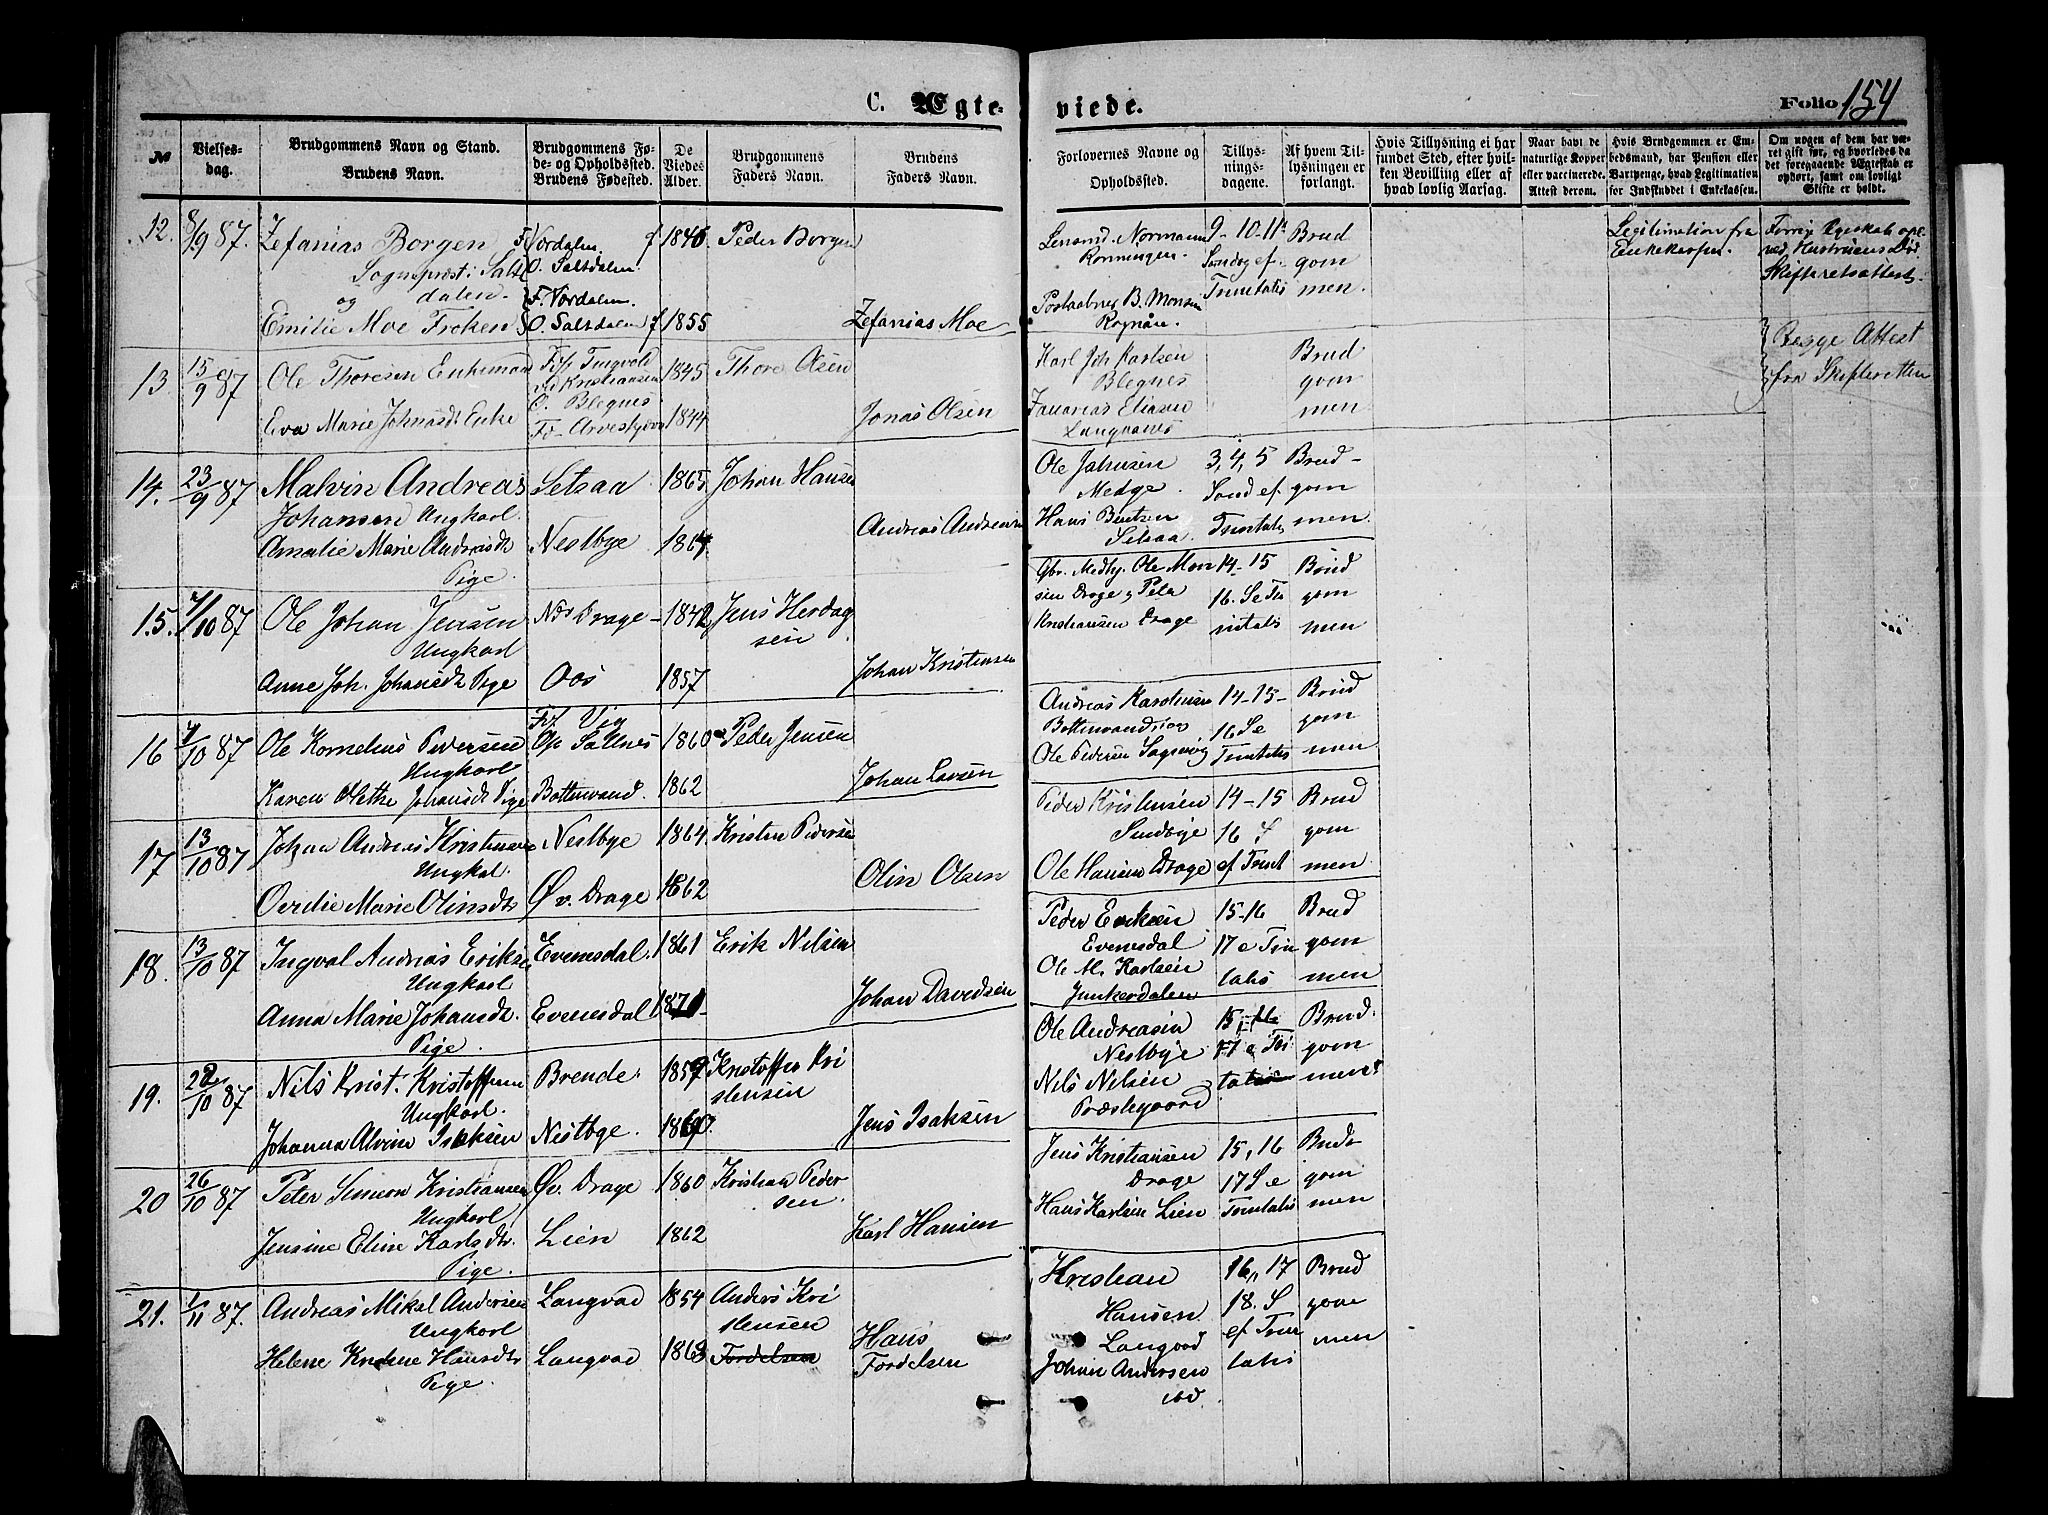 C. Ægteviede.
Folio 154
№
Vielsesdag.
Brudgommens Navn og Stand.
Brudens Navn.
Brudgommens Føde- og Opholdssted.
Brudens Fødested.
De Viedes Alder.
Brudgommens Faders Navn.
Brudens Faders Navn.
Forlovernes Navne og Opholdssted.
Tillysningsdagene.
Af hvem Tillysningen er forlangt.
Hvis Tillysning ei har fundet Sted, efter hvilken Bevilling eller af hvad lovlig Aarsag.
Naar havt de naturlige Kopper eller vaccinerede. Attest derom.
Hvis Brudgommen er Embedsmand, har Pension eller Vartpenge, hvad Legitimation for Indskuddet i Enkekassen.
Om nogen af dem har været gift før, og hvorledes da det foregaaende Ægteskab er ophørt, samt om lovligt Skifte er holdt.
12. 8/9 87. Zefanias Borgen F. Værdalen f 1840. Peder Borgen
Sogneprest i Saltdalen. O. Saltdalen
og F. Værdalen.
Emilie Moe Frøken O. Saltdalen f 1855 Zefanias Moe
Lensmd. Normann Rønningen. 9-10-11te Søndag ef. Trinitatis Brudgommen.
Postaabner B. Monsen Rognan.
Legitimation fra Enkekassen.
Forrige Egteskab opl. ved Hustruens Død. Skifteretsattest.
13 15/9 87 Ole Thoresen Enkemand F. Tingvold ved Kristiansund O. Blegnes 1845 Thore Olsen
Eva Marie Johnsdt. Enke Fø- Arvestj 1844 Jonas Olsen
Karl Joh Karlsen Blegnes Brudgommen
Zakarias Eliasen Langaanes
Begge Attest fra Skifteretten
14. 23/9 87 Malvin Andreas Setsaa 1865 Johan Hansen
Johansen Ungkarl.
Amalie Marie Andreasdt. Nestbye 1864 Andreas Andersen
Pige.
Ole Jahnsen Medge. 3, 4, 5 Sønd ef. Trinitatis Brudgommen.
Hans Bentsen Setsaa.
15. 7/10 87 Ole Johan Jensen Nd. Drage 1842 Jens Herdagsen
Ungkarl
Anne Joh. Johansdt. Pige Oos 1857 Johan Kristensen
Gbr. Medhj. Ole Monsen Drage, Peter Kristiansen Drage 14-15 16. S e Trinitatis Brudgommen
16 7/10 87 Ole Kornelius Pedersen F. Vig Op Saltnes 1860 Peder Jensen
Ungkarl
Karen Olethe Johansdt. Pige Bottenvand. 1862 Johan Larsen
Andreas Karolinsen Bottenvand 14-15- 16 S e Trinitatis Brudgommen
Ole Pedersen Sagevig
17 13/10 87 Johan Andreas Kristensen Nestbye 1864 Kristen Pedersen
Ungkal.
Cecilie Marie Olinsdtr Øv. Drage 1862 Olin Olsen
Peder Kristensen Sundbye 14-15 16 S ef Trinit Brudgommen
Ole Hansen Drage
18. 13/10 87 Ingval Andreas Eriksen Evenesdal. 1861 Erik Nilsen
Ungkarl
Anna Marie Johansdt. Evenesdal 1871 Johan Davidsen
Pige.
Peder Eriksen Evenesdal 15-16 17 e Trinitatis Brudgommen
Ole M. Karlsen Junkerdalen
19. 22/10 87 Nils Krist. Kristoffersen Brende. 1859 Kristoffer Kristensen
Ungkarl.
Johanna Alvine Isaksen Nestbye. Jens Isaksen
Ole Andreasen Nestbye 15, 16 17 e Tri tatis Brudgommen
Nils Nilsen Præstegaard
20 26/10 87 Peter Simon Kristiansen Øv. Drage 1860 Kristian Pedersen
Ungkarl
Jensine Eline Karlsdtr. Lien 1862 Karl Hansen
Pige.
Jens Kristiansen Drage 15, 16 17 S e Trinitatis Brudgommen
Hans Karlsen Lien
21. 1/11 87. Andreas Mikal Andersen Langvad 1854 Anders Kristensen
Ungkarl
Helene Kristine Hansdtr Langvad 1863 Tordelsen Hans Tordelsen
Pige.
Kristian Hansen Langvad 16, 17 18. S ef Trinitatis Brudgommen
Johan Andersen ibd.